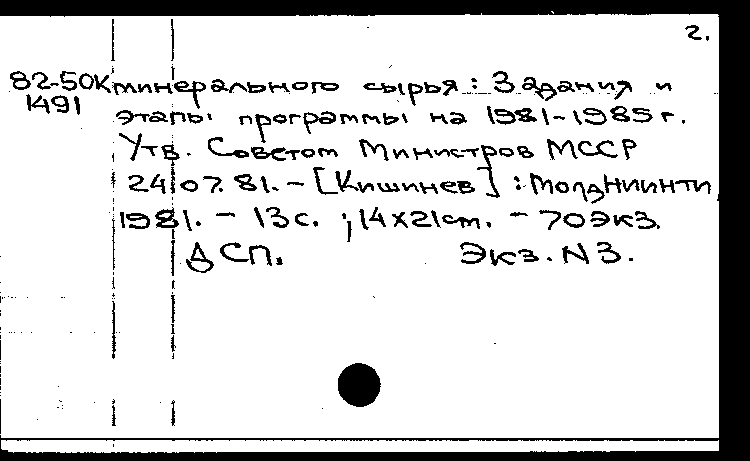 2.
82-50К минерального сырья : Задания и
1491 этапы программы на 1981-1985 г.
Утв. Советом Министров МССР
24.07.81. - [Кишинев] : МолдНИИНТИ,
1981. - 13 с. ; 14х21 см. - 70 экз.
ДСП. Экз. N3.